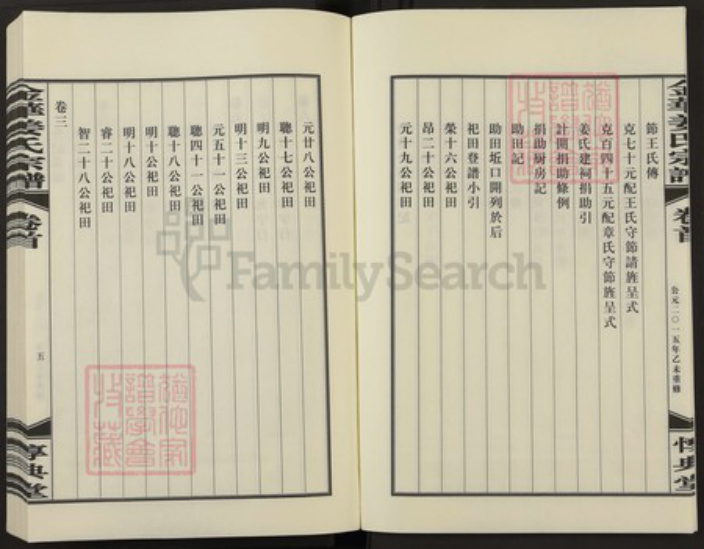 金華姜氏宗譜
卷首
公元二〇一五年乙未重修
惇典堂
節王氏傳
克七十元配王氏守節請旌呈式
克百四十五元配章氏守節旌呈式
姜氏建祠捐助引
計開捐助條例
捐助厨房記
助田記
助田坵口開列於后
祀田登譜小引
榮十六公祀田
昂二十公祀田
元十九公祀田
元廿八公祀田
聰十七公祀田
明九公祀田
明十三公祀田
元五十一公祀田
聰四十一公祀田
聰十八公祀田
明十公祀田
明十八公祀田
睿二十公祀田
智二十八公祀田
卷三
金華姜氏宗譜
卷首
五
惇典堂
FamilySearch
譜學會
收藏